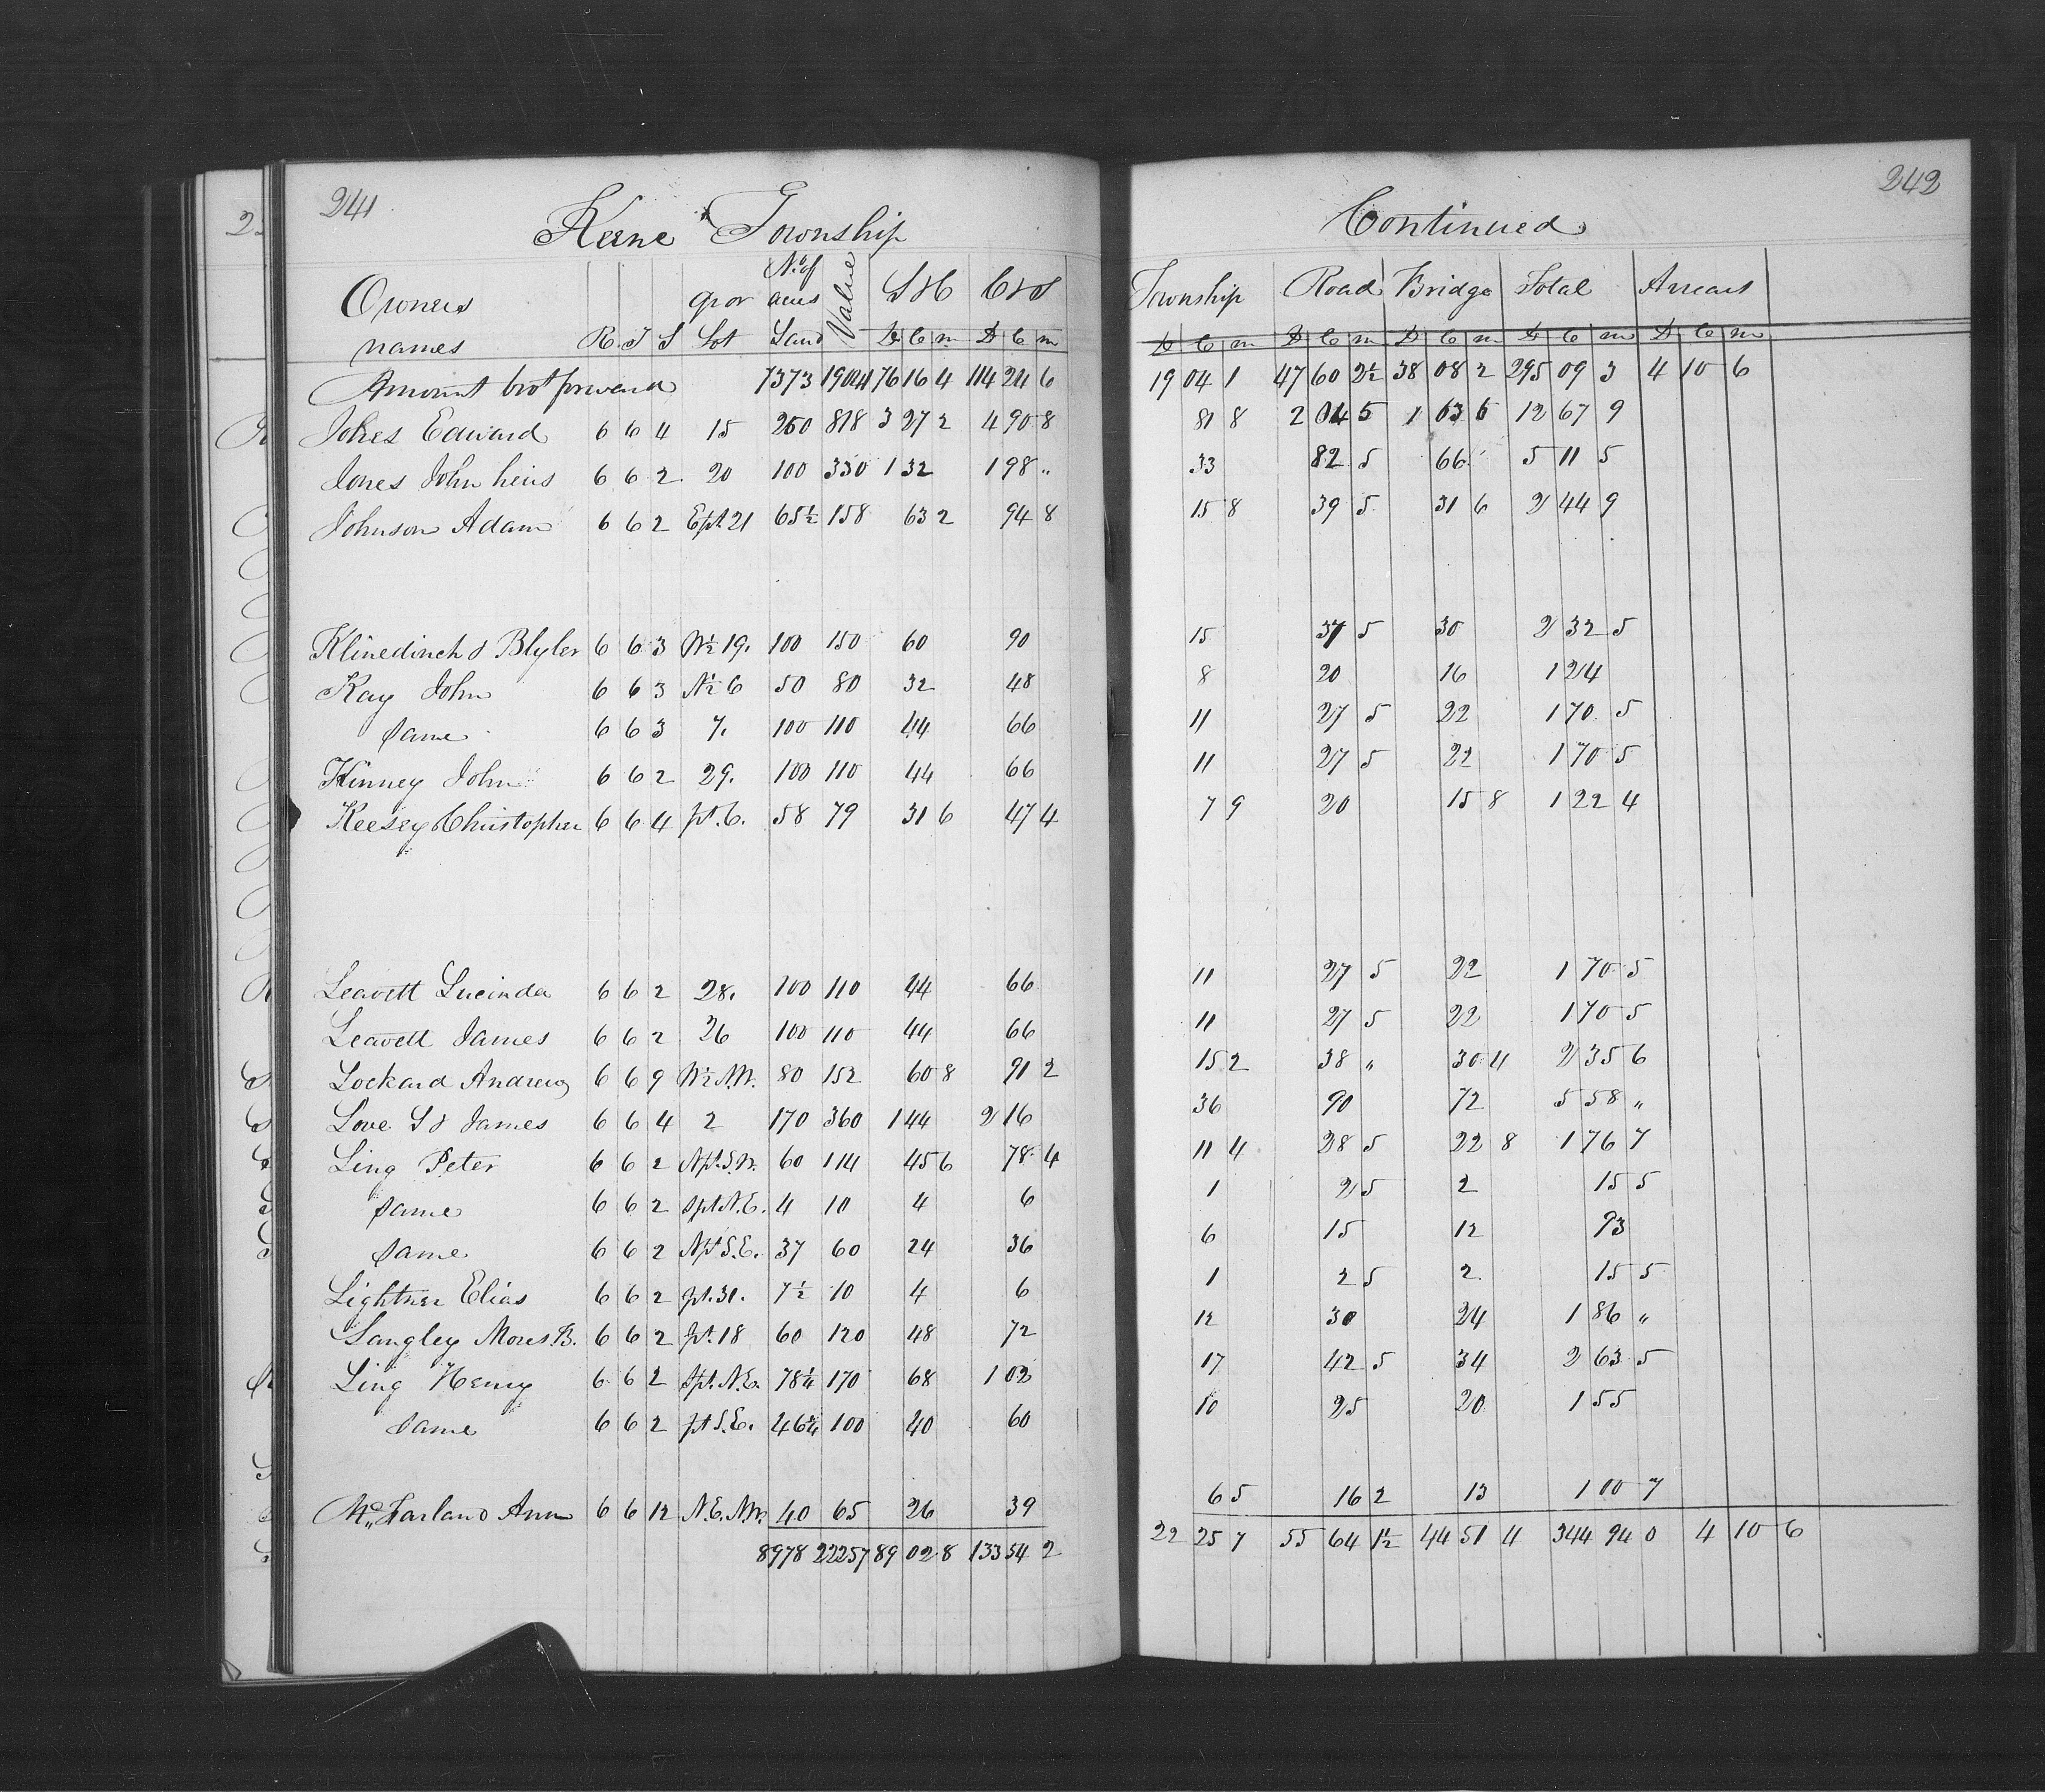 241
Keene Township
Owners names R. T S qr or Lot No. of acres Land Value S & C D C m C & S D C m
Amount brot forward 7373 19041 76 16 4 114 24 6
Jones Edward 6 6 4 15 250 818 3 27 2 4 90 8
Jones John heirs 6 6 2 20 100 330 1 32 1 98 "
Johnson Adam 6 6 2 E pt. 21 65½ 158 63 2 94 8
Klinedinch & Blyler 6 6 3 W½ 19. 100 150 60 90
Kay John 6 6 3 N½ 6 50 80 32 48
Same 6 6 3 7. 100 110 44 66
Kinney John 6 6 2 29. 100 110 44 66
Keesey Christopher 6 6 4 pt. 6. 58 79 31 6 47 4
Leavett Lucinda 6 6 2 28. 100 110 44 66
Leavett James 6 6 2 26 100 110 44 66
Lockard Andrew 6 6 9 W½ N.W. 80 152 60 8 91 2
Love S & James 6 6 4 2 170 360 1 44 2 16
Ling Peter 6 6 2 N pt. S.W. 60 114 45 6 78 4
Same 6 6 2 S pt N.E. 4 10 4 6
Same 6 6 2 N pt S.E. 37 60 24 36
Lightner Elias 6 6 2 pt. 31. 7½ 10 4 6
Langley Moses B. 6 6 2 pt. 18 60 120 48 72
Ling Henry 6 6 2 S pt. N.E. 78¼ 170 68 1 02
Same 6 6 2 pt S.E. 46¾ 100 40 60
McFarland Ann 6 6 12 N.E. N.W. 40 65 26 39
8978 22257 89 02 8 133 54 2
242
Continued
Township D C m Road D C m Bridge D C m Total D C m Arrears D C m
19 04 1 47 60 2½ 38 08 2 295 09 3 4 10 6
81 8 2 04 5 1 63 6 12 67 9
33 82 5 66 5 11 5
15 8 39 5 31 6 2 44 9
15 37 5 30 2 32 5
8 20 16 1 24
11 27 5 22 1 70 5
11 27 5 22 1 70 5
7 9 20 15 8 1 22 4
11 27 5 22 1 70 5
11 27 5 22 1 70 5
15 2 38 " 30 4 2 35 6
36 90 72 5 58 "
11 4 28 5 22 8 1 76 7
1 2 5 2 15 5
6 15 12 93
1 2 5 2 15 5
12 30 24 1 86 "
17 42 5 34 2 63 5
10 25 20 1 55
6 5 16 2 13 1 00 7
22 25 7 55 64 1½ 44 51 4 344 94 0 4 10 6